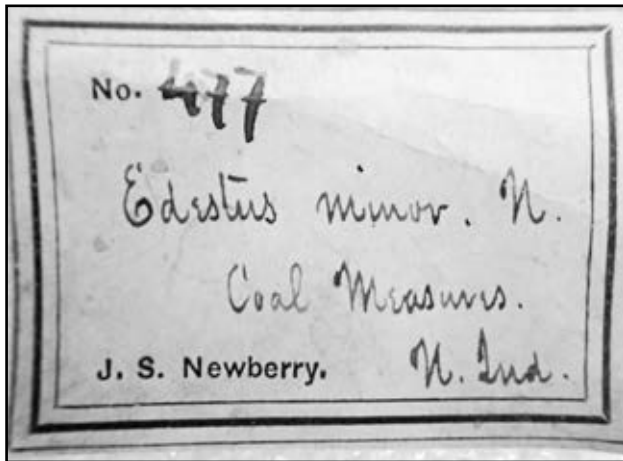 No. 477
Edestus minor. N.
Coal Measures.
J. S. Newberry. N. Ind.